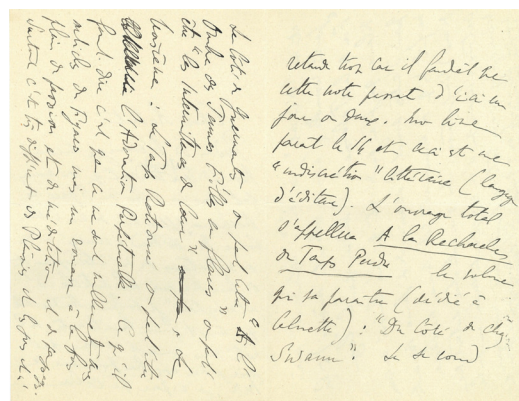 retard non car il faudrait que
cette note parût d'ici un
jour ou deux. Mon livre
paraît le 14 et ceci est une
"indiscrétion" littéraire (langage
d'éditeur). L'ouvrage total
s'appellera A la Recherche
du Temps Perdu le volume
qui va paraître (dédié à
Calmette) : "Du Côté de chez
Swann". Le second
Le Côté de Guermantes ou peut-être "A l'
Ombre des Jeunes Filles en fleurs" ou peut-
être "Les intermittences du Cœur". Le
troisième : Le Temps Retrouvé ou peut-être
l'Adoration Perpétuelle. Ce qu'il
faut dire c'est que ce ne sont nullement des
articles du Figaro mais un roman à la fois
plein de passion et de méditation et de paysages.
Surtout c'est très différent des Plaisirs et les Jours et